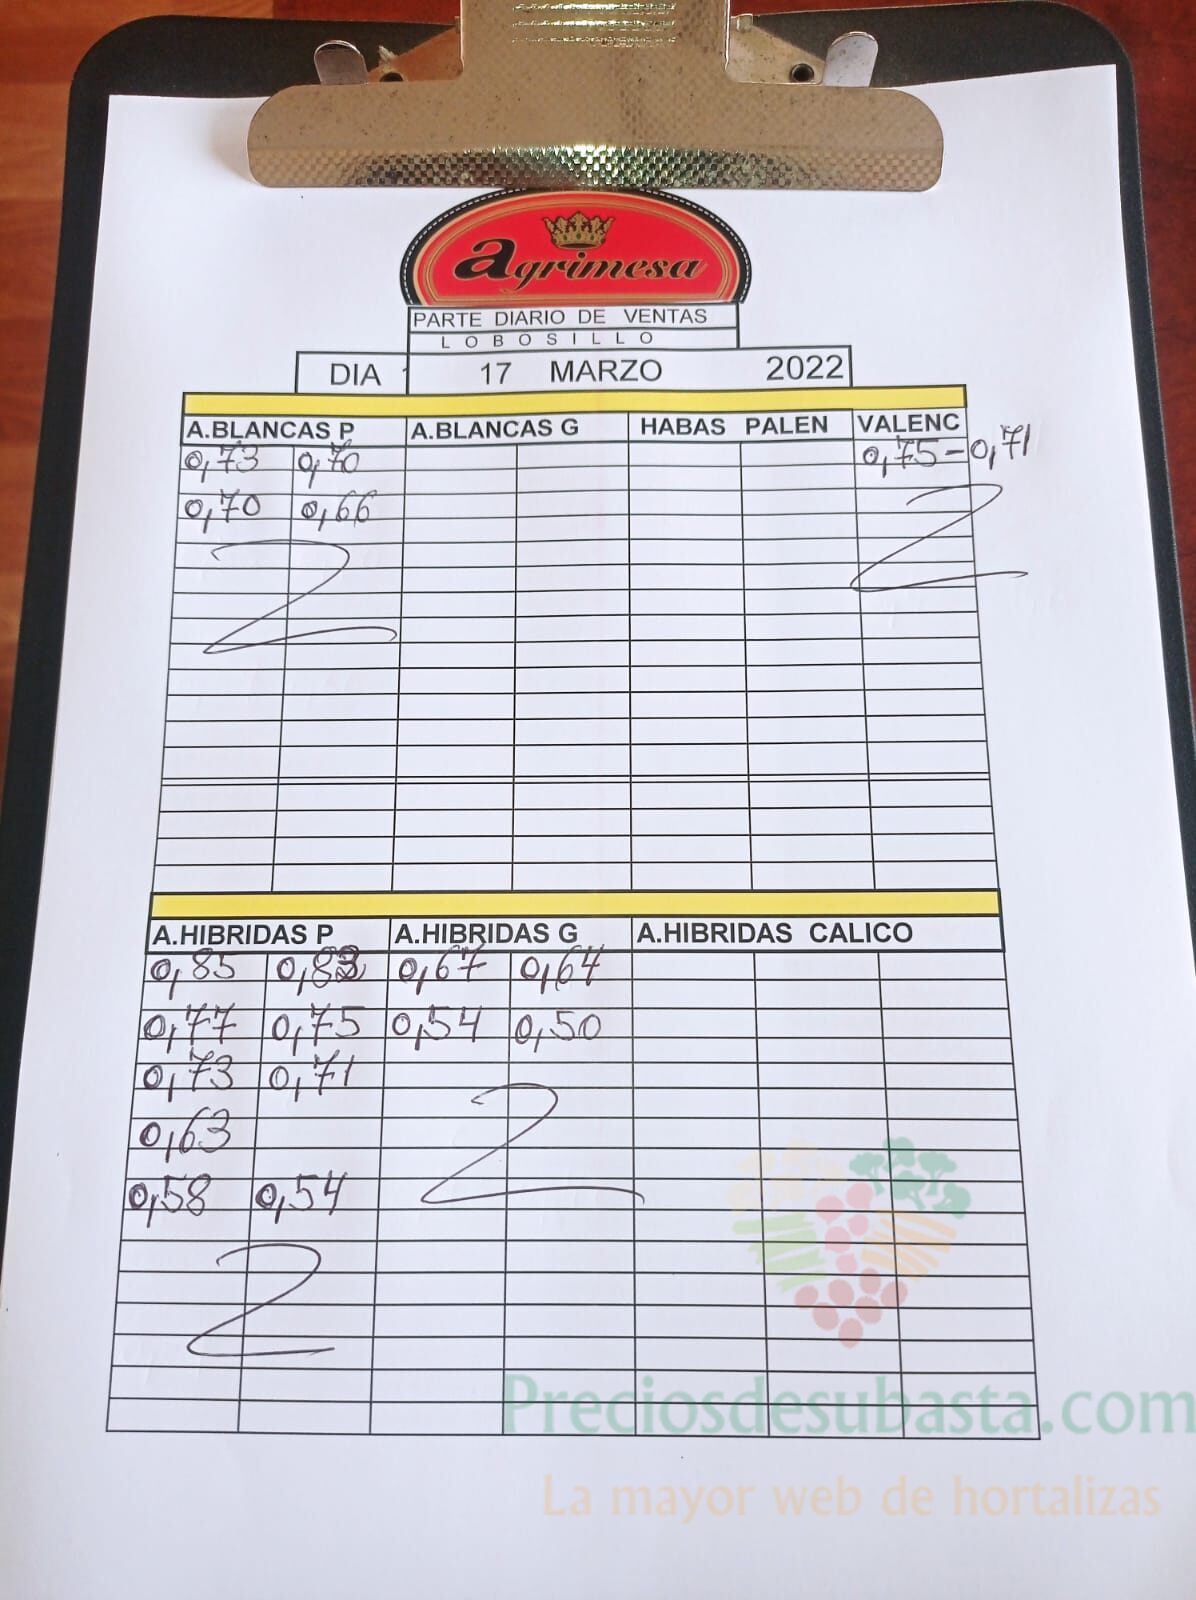 Agrimesa
PARTE DIARIO DE VENTAS
LOBOSILLO
DIA 17 MARZO 2022
A.BLANCAS P A.BLANCAS G HABAS PALEN VALENC
0,73 0,70 0,75-0,71
0,70 0,66
A.HIBRIDAS P A.HIBRIDAS G A.HIBRIDAS CALICO
0,85 0,83 0,67 0,64
0,77 0,75 0,54 0,50
0,73 0,71
0,63
0,58 0,54
Preciosdesubasta.com
La mayor web de hortalizas